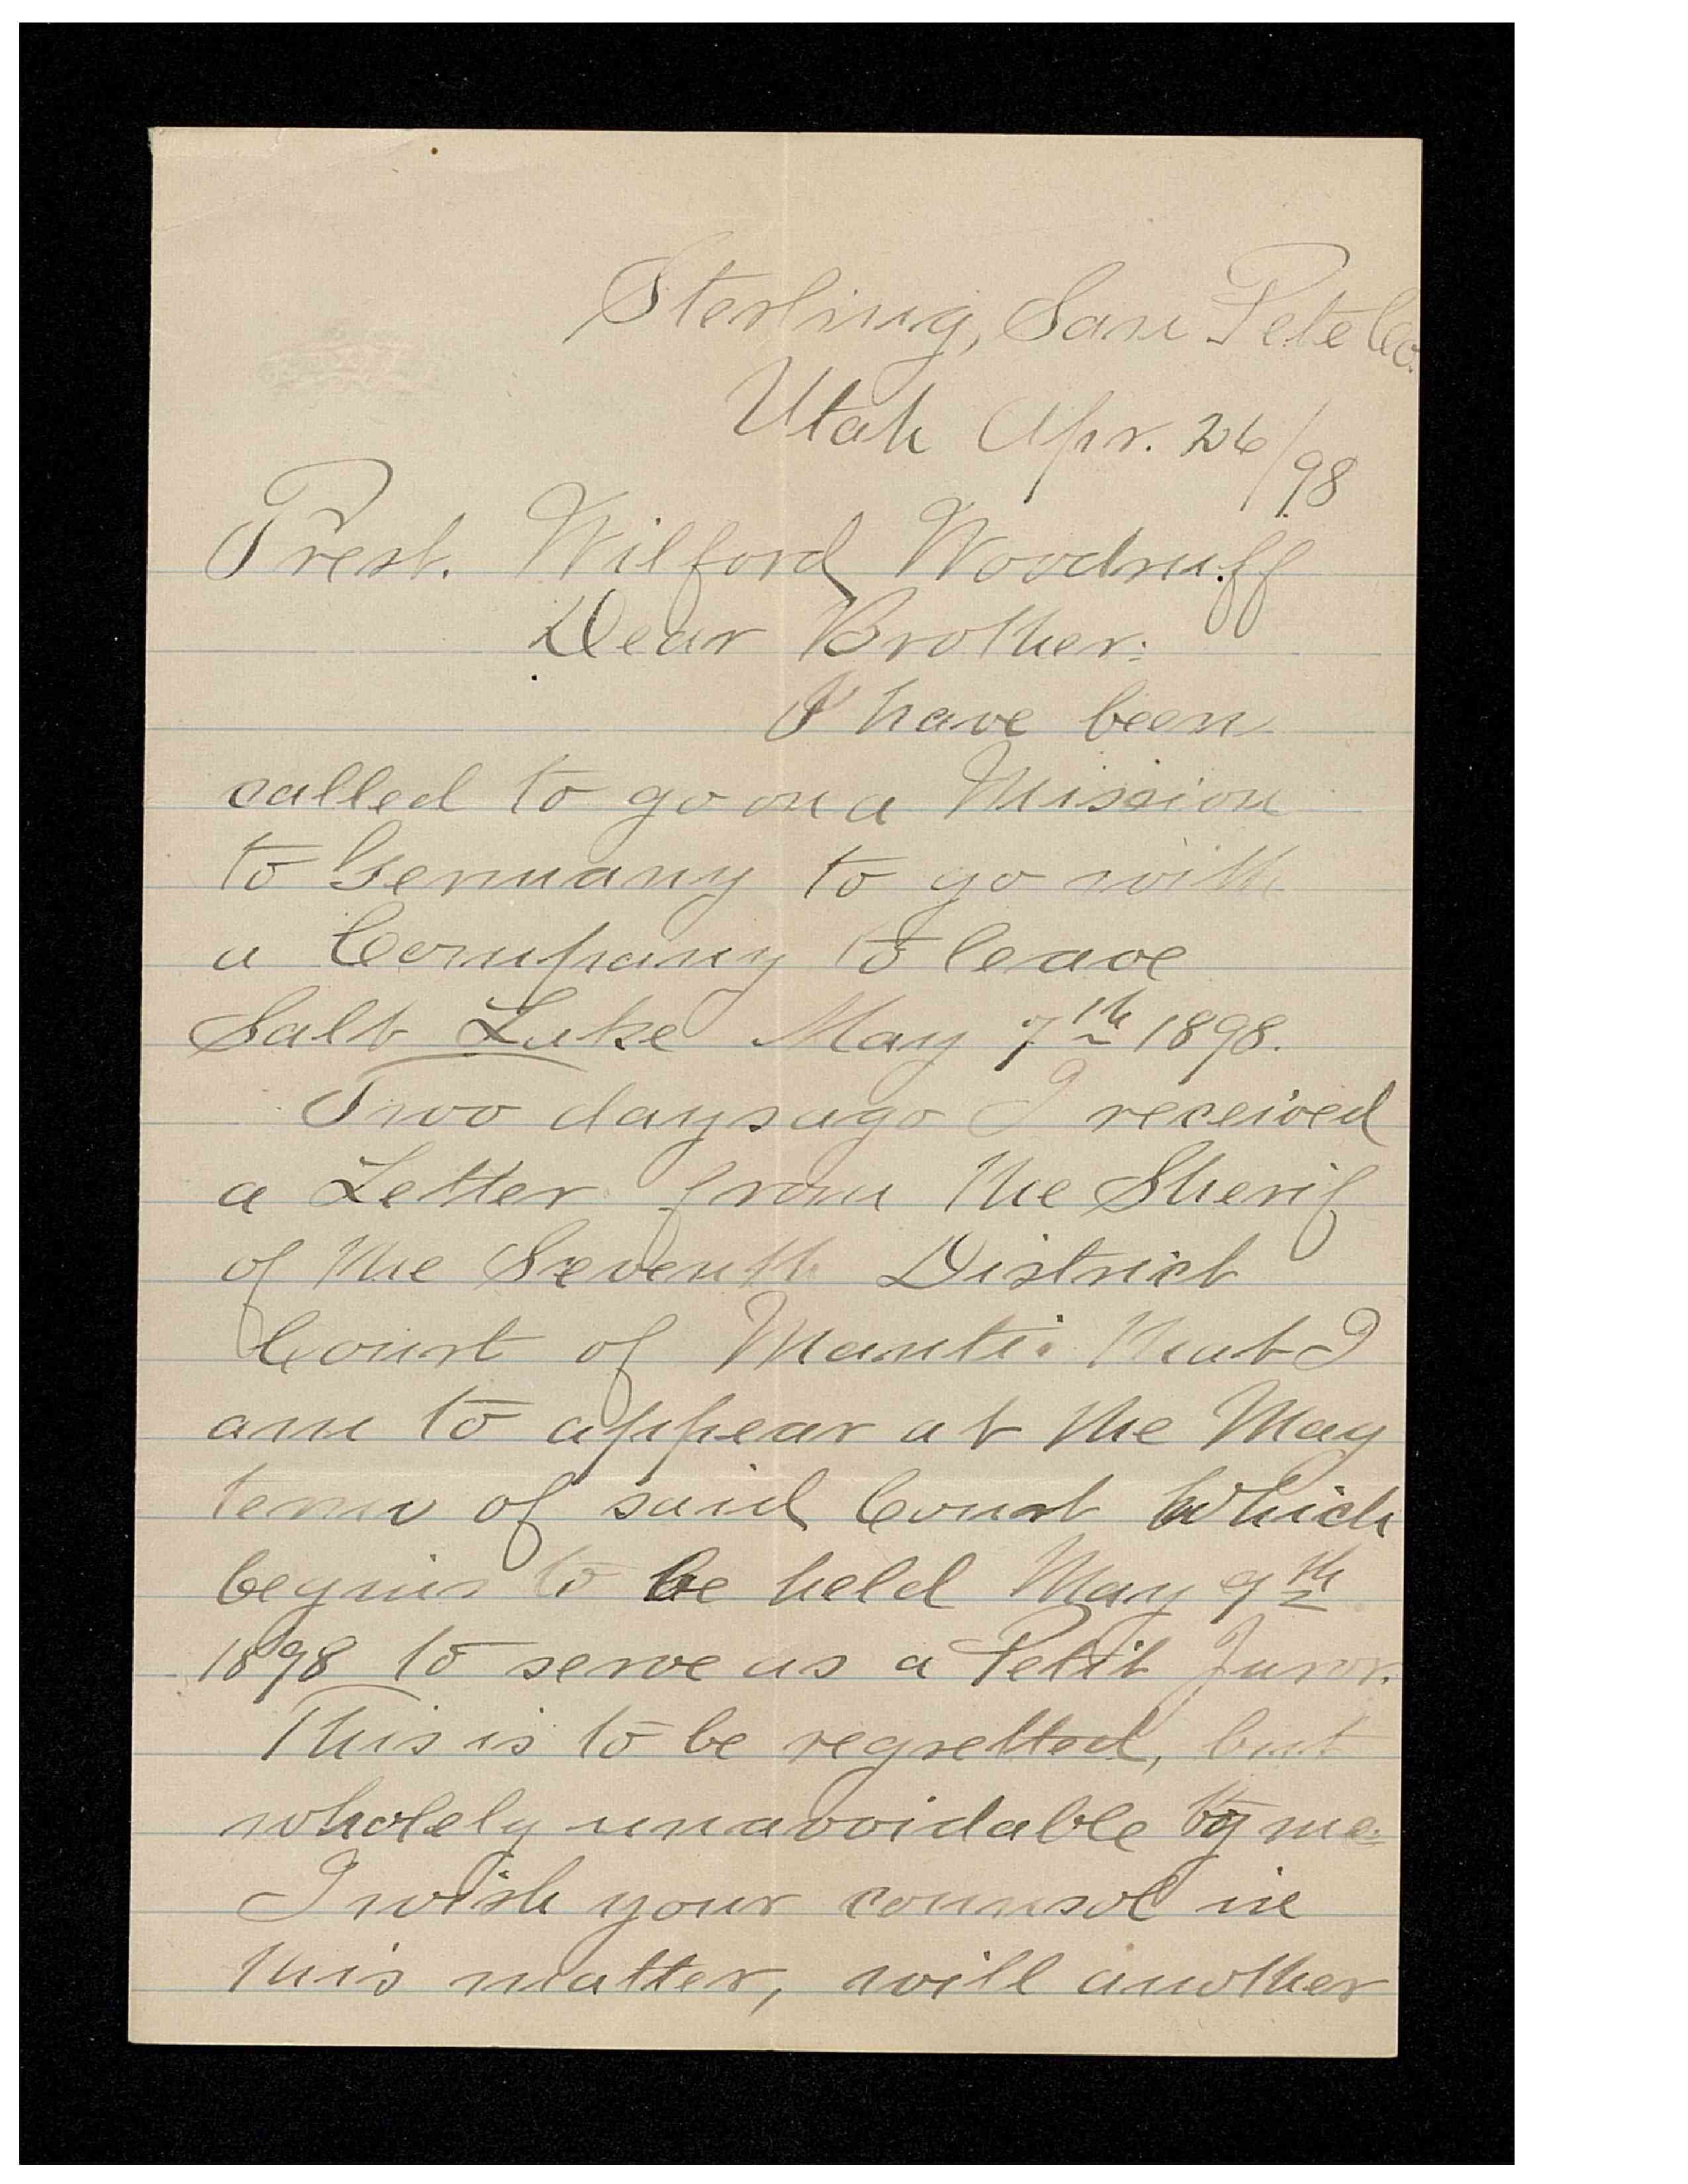 Sterling, San Pete Co.
Utah Apr. 26/98
Prest. Wilford Woodruff
Dear Brother:
I have been
called to go on a Mission
to Germany to go with
a Company to leave
Salt Lake May 7th 1898.
Two days ago I received
a Letter from the Sherif
of the Seventh District
Court of Manti. that I
am to appear at the May
term of said Court Which
begins to be held May 9th
1898 to serve as a Petit Juror.
This is to be regretted, but
wholely unavoidable by me.
I wish your counsel in
this matter, will another